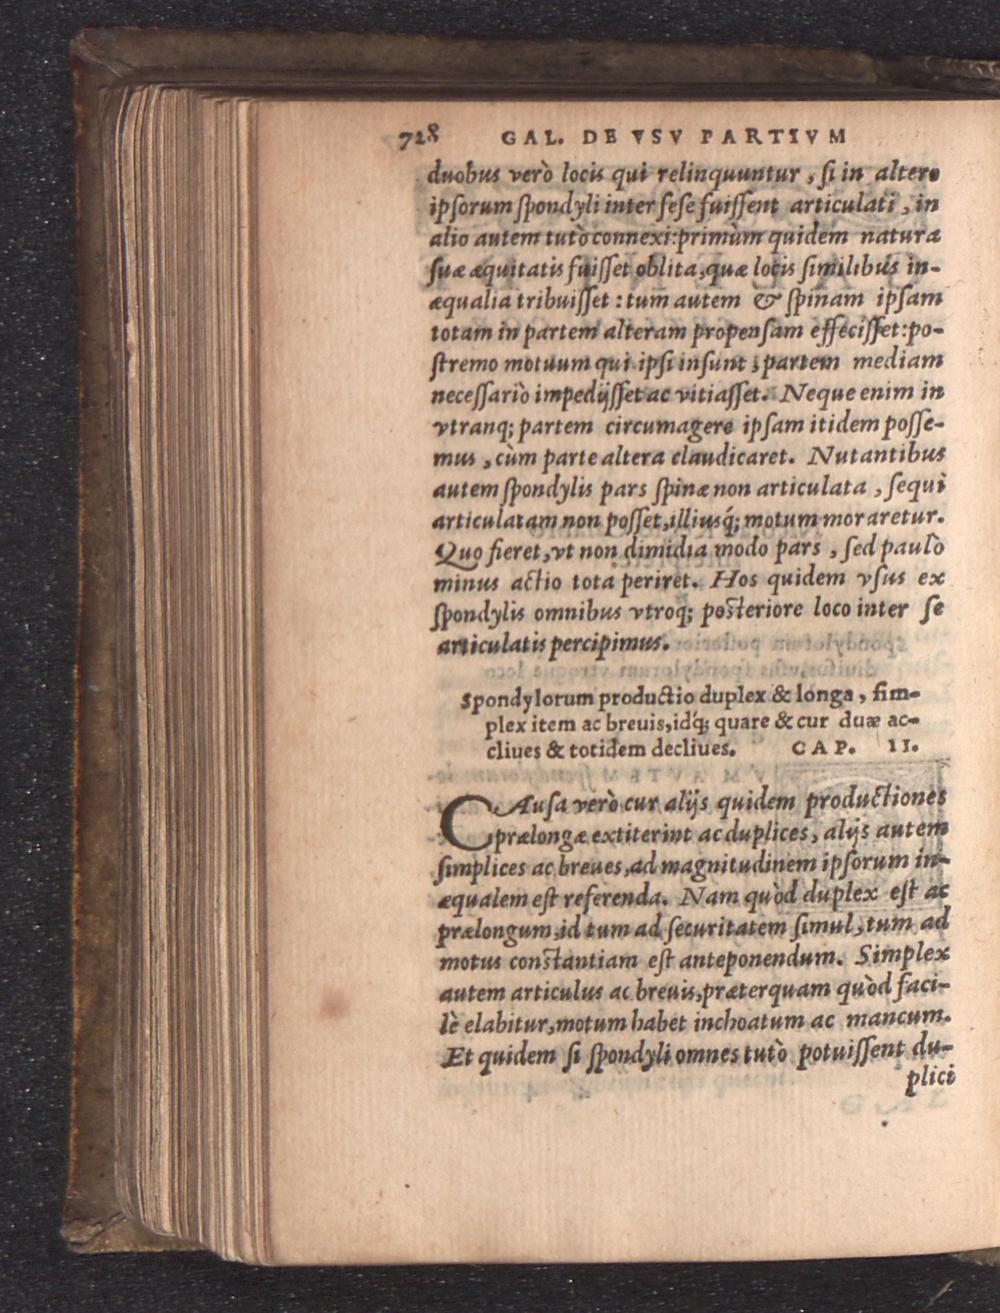 728 GAL. DE VSV PARTIVM
duobus verò locis qui relinquuntur, si in altero
ipsorum spondyli inter sese fuissent articulati, in
alio autem tutò connexi: primùm quidem natura
suæ æquitatis fuisset oblita, quæ locis similibus in-
æqualia tribuisset: tum autem & spinam ipsam
totam in partem alteram propensam effecisset: po-
stremo motuum qui ipsi insunt, partem mediam
necessariò impedijsset ac vitiasset. Neque enim in
vtranq; partem circumagere ipsam itidem posse-
mus, cùm parte altera claudicaret. Nutantibus
autem spondylis pars spinæ non articulata, sequi
articulatam non posset, illiusq́; motum moraretur.
Quo fieret, vt non dimidia modo pars, sed paulò
minus actio tota periret. Hos quidem vsus ex
spondylis omnibus vtroq; posteriore loco inter se
articulatis percipimus.
Spondylorum productio duplex & longa, sim-
plex item ac breuis, idq́; quare & cur duæ ac-
cliues & totidem decliues. CAP. II.
CAusa verò cur alijs quidem productiones
prælongæ extiterint ac duplices, alijs autem
simplices ac breues, ad magnitudinem ipsorum in-
æqualem est referenda. Nam quòd duplex est ac
prælongum, id tum ad securitatem simul, tum ad
motus constantiam est anteponendum. Simplex
autem articulus ac breuis, præterquam quòd faci-
lè elabitur, motum habet inchoatum ac mancum.
Et quidem si spondyli omnes tutò potuissent du-
plici